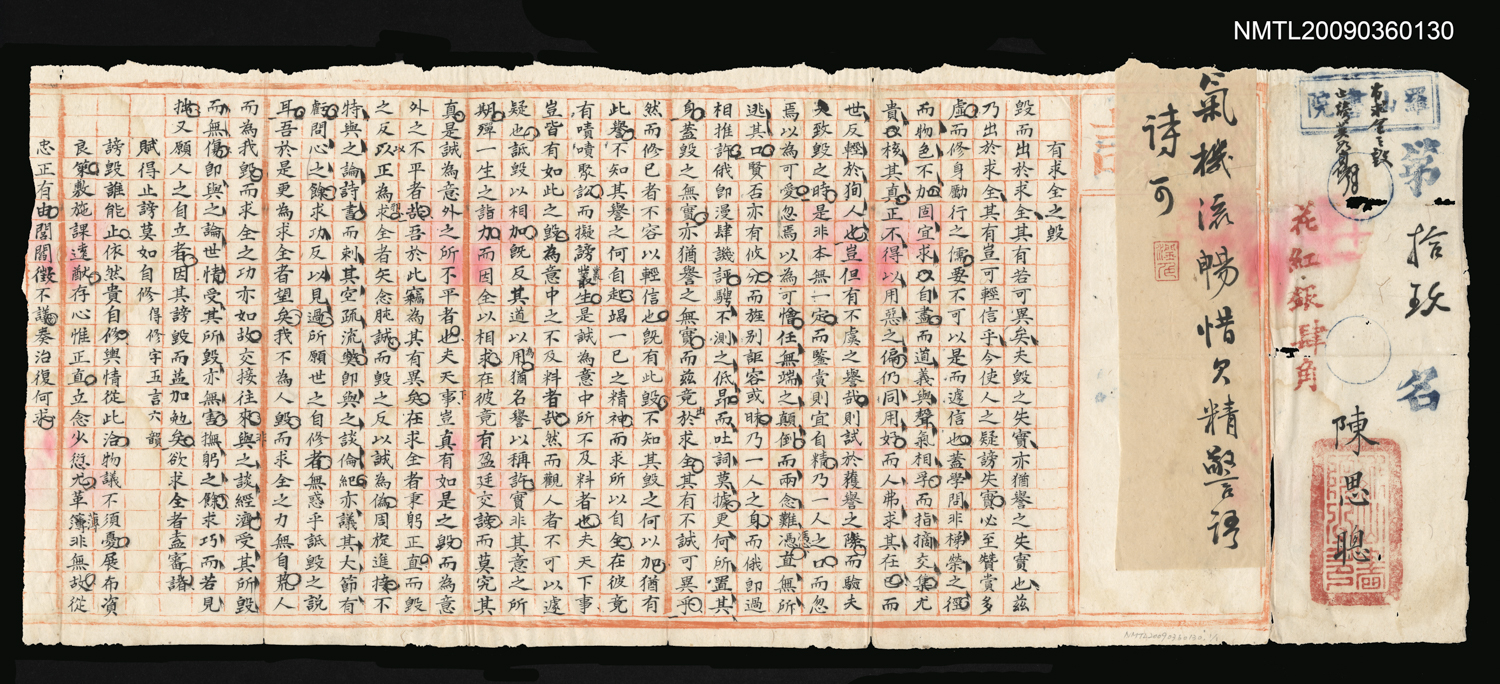 NMTL20090360130
羅山書院
有求全之毀
第拾玖名
陳思聰
花紅銀肆角
氣機流暢惜欠精警語
詩可
有求全之毀
毀而出於求全其有若可異矣夫毀之失實亦猶譽之失實也茲
乃出於求全其有豈可輕信乎今使人之疑謗失實必至贊賞多
虛而修身勵行之儒要不可以是而遽信也蓋學問非梯榮之徑
而物色不加固宜求以自盡而道義與聲氣相孚而指摘交集尤
貴以核其真正不得以用惡之偏仍同用好而人弗求其在而
世反輕於狥人也豈但有不虞之譽哉則試於獲譽之際而驗夫
失致毀之時是非本無一定而鑒賞則宜自精乃一人之口而忽
焉以為可愛忽焉以為可憎任無端之顛倒而兩念難憑且無所
逃其口賢否亦有攸分而旌别詎容或昧乃一人之身而俄即過
相推許俄即漫肆譏評騁不測之低昂而吐詞莫據更何所置其
身蓋毀之無實亦猶譽之無實而茲竟於求全其有不誠可異乎
然而修己者不容以輕信也既有此毀不知其毀之何以加猶有
此譽不知其譽之何自起竭一己之精神而求所以自全在彼竟
有嘖嘖聚訟而擬謗叢生是誠為意中所不及料者也夫天下事
豈皆有如此之毀為意中之不及料者哉然而觀人者不可以遽
疑也詆毀以相加既反其道以用猶名譽以稱許實非其意之所
期殫一生之詣力而因全以相求在彼竟有盈廷交謗而莫究其
真是誠為意外之所不平者也夫天下事豈真有如是之毀而為意
外之不平者哉吾於此竊為其有異矣在求全者秉躬正直而毀
之反以不正為求全者矢念肫誠而毀之反以誠為偽周旋進接不
特與之論詩書而刺其空疏流弊即與之談倫紀亦議其大節有
虧問心之餘求功反以見過所願世之自修者無惑乎詆毀之說
耳吾於是更為求全者望矣我不為人毀而求全之力無自荒人
而為我毀而求全之功亦如故交接往來與之談經濟受其所毀
而無傷即與之論世情受其所毀亦無害撫躬之餘求巧而若見
拙又願人之自立者因其謗毀而益加勉矣欲求全者盍審諸
賦得止謗莫如自修 得修字五言六韻
謗毀誰能止依然貴自修輿情從此洽物議不須憂展布資
良策敷施課遠猷存心惟正直立念少愆尤革薄非無故從
忠正有由閭閻徵不議奏治復何求
NMTL20090360130